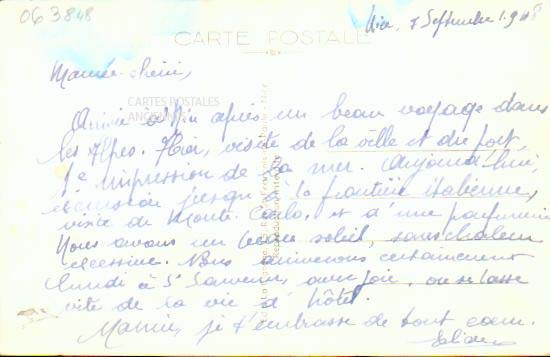 063848
Nice, 7 Septembre 19
CARTE POSTALE
Mamée chérie,
CARTES POSTALES
ANCIENNES
Arrivée à Nice après un beau voyage dans
les Alpes. Hier, visite de la ville et du port,
1e impression de la mer. Aujourd'hui,
excursion jusqu'à la frontière italienne,
visite de Monte Carlo, et d'une parfumerie
Nous avons un beau soleil, sans chaleur
excessive. Nous arriverons certainement
lundi à St Sauveur, avec joie, on se lasse
vite de la vie d'hôtel.
Mamie, je t'embrasse de tout cœur.